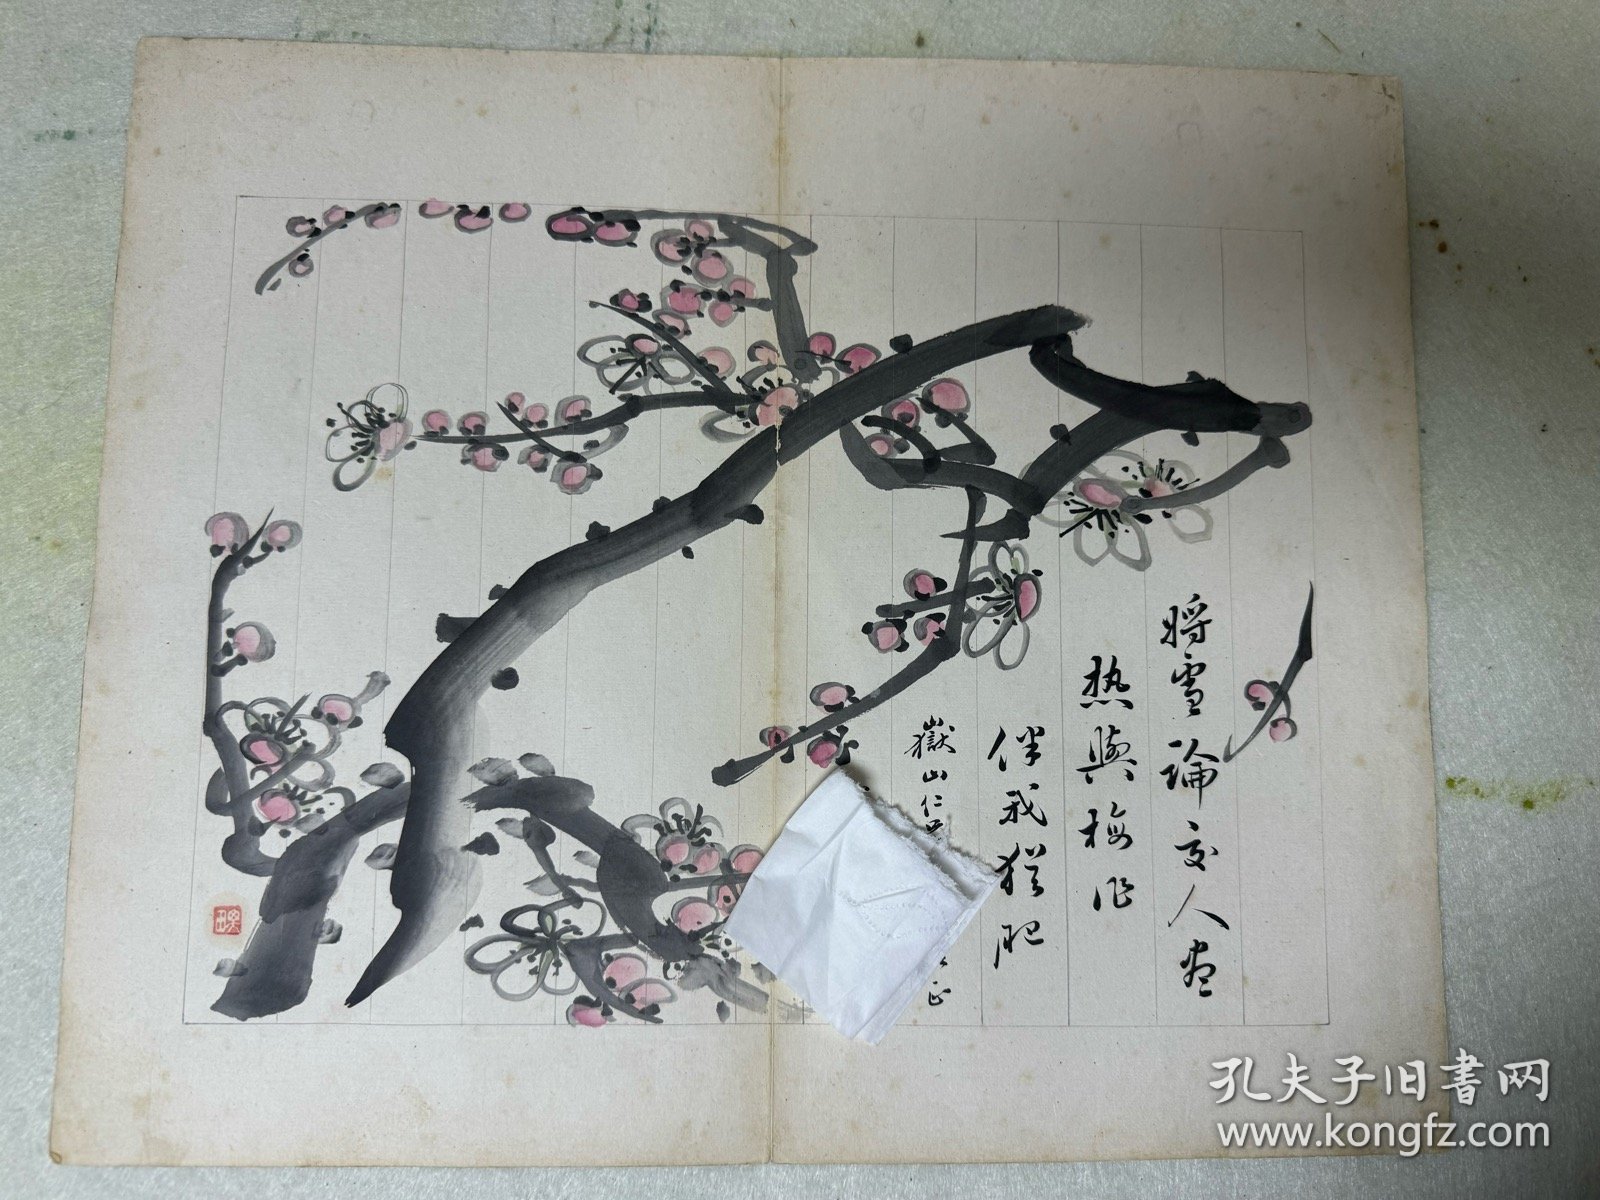 將雪論交人盡
熱與梅作
伴我猶肥
嶽山仁
正
孔夫子旧書网
www.kongfz.com